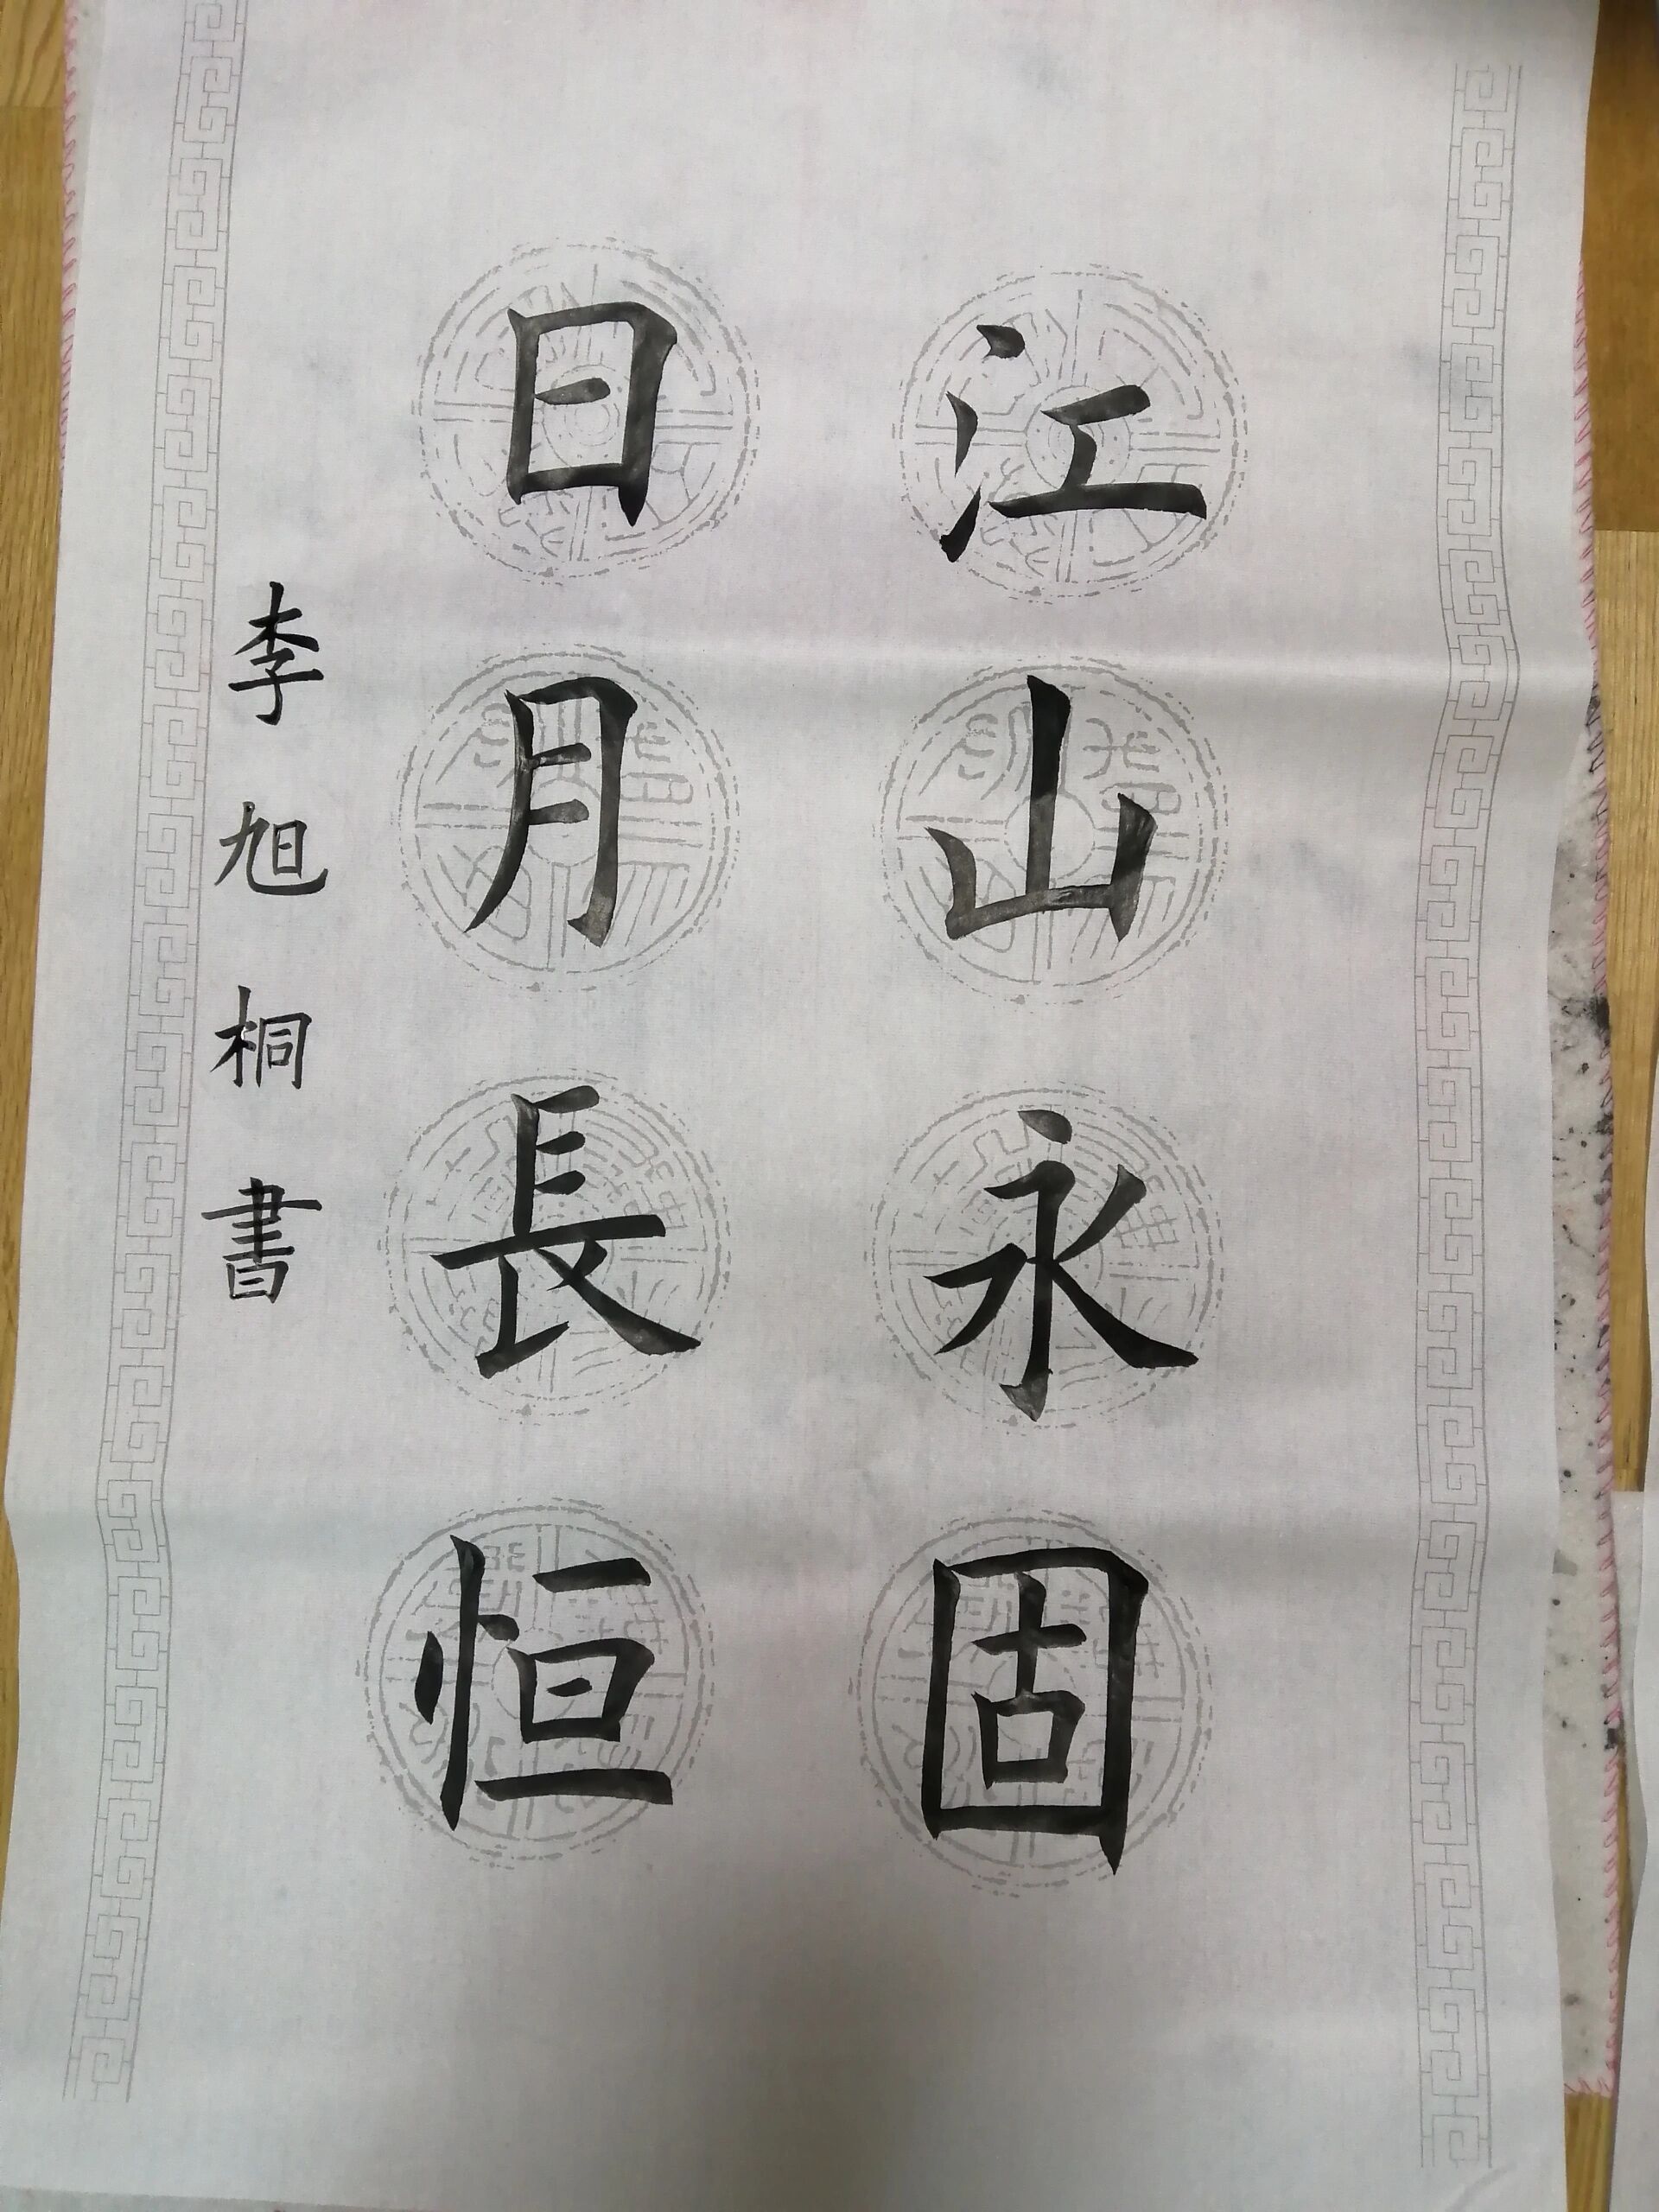 江山永固
日月長恒
李旭桐書